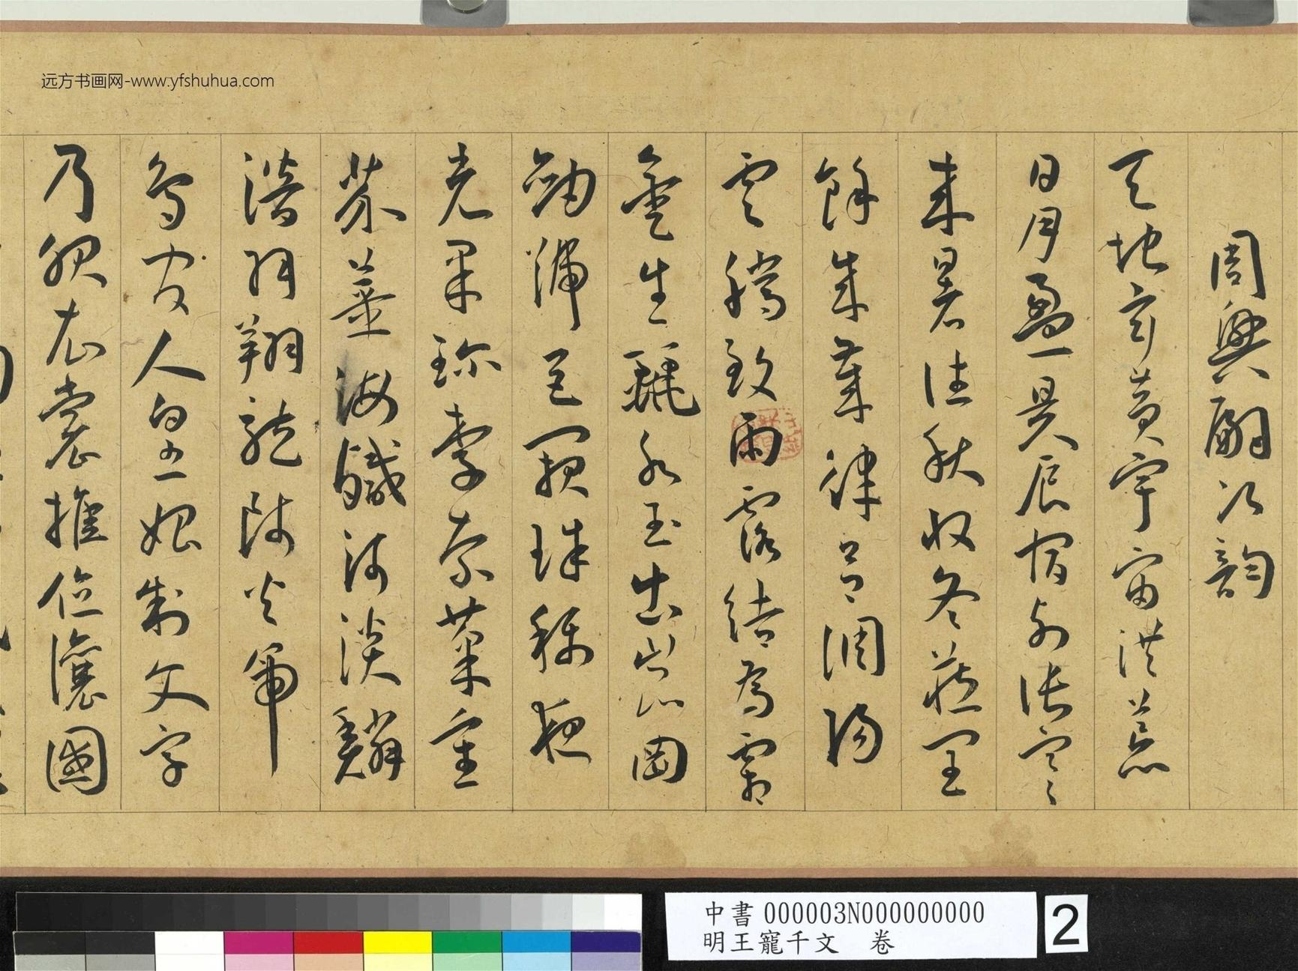 远方书画网-www.yfshuhua.com
周興嗣次韵
天地玄黄宇宙洪荒
日月盈昃辰宿列張寒
来暑往秋收冬藏閏
餘成歲律吕調陽
雲騰致雨露結為霜
金生麗水玉出崑岡
劍號巨闕珠稱夜
光果珍李柰菜重
芥薑海鹹河淡鱗
潛羽翔龍師火帝
鳥官人皇始制文字
乃服衣裳推位讓國
中書 000003N000000000
明王寵千文 卷
2